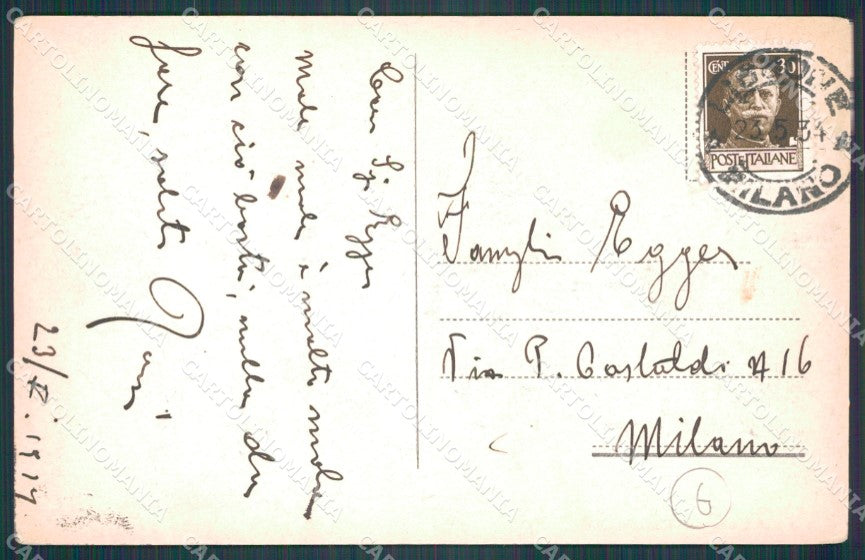 Cara Sig Egger
Male male è molto male
con ciò basta, nulla da
fare, saluti
23/V. 19
Famiglia Egger
Via P. Castaldi N 16
Milano
6
CENT 30
POSTE ITALIANE
23.5.34
MILANO
CARTOLINOMANIA